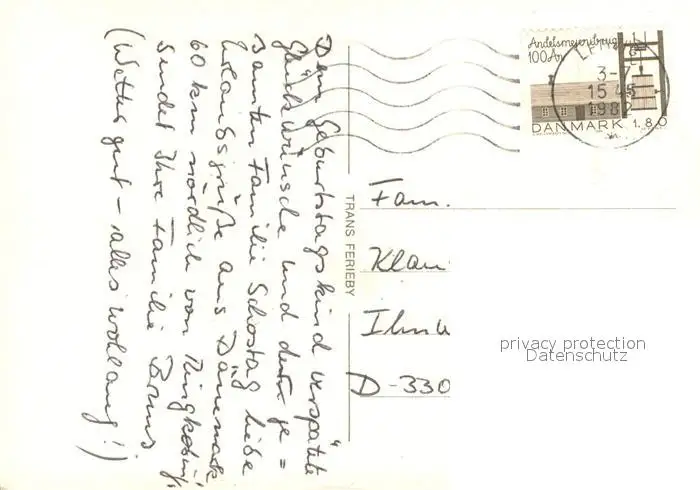 Dem Geburtstagskind verspätete
Glückwünsche und der ge=
samten Familie Schostag liebe
Urlaubsgrüße aus Dänemark
60 km nördlich von Ringkobing,
sendet Ihre Familie Bruns
(Wetter gut – alles wohlauf!)
TRANS FERIEBY
Andelsmejeribrug
100 År
3-7
15 45
1982
DANMARK 1.80
Fam.
Klau
Ilm
D-330
privacy protection
Datenschutz